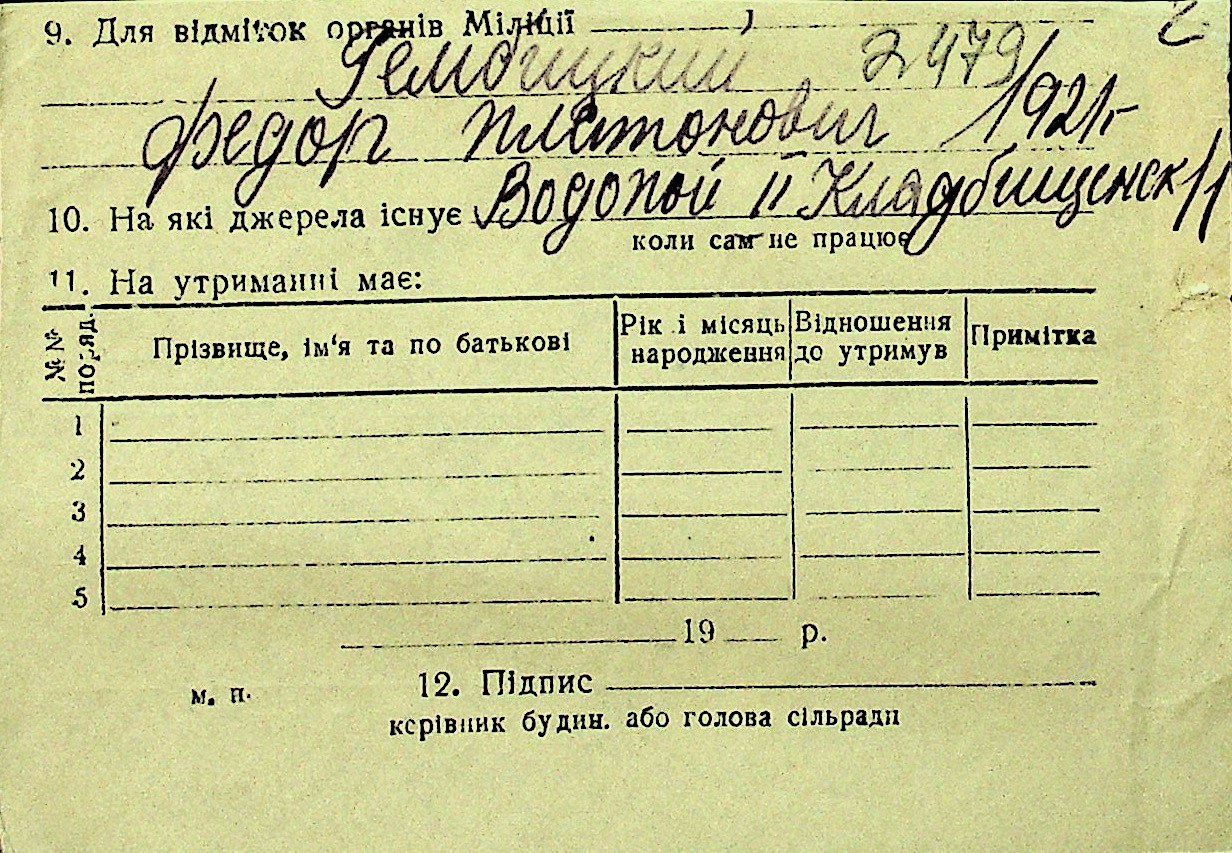 9. Для відміток органів Міліції
2479
Федор Платонович 1921г
10. На які джерела існує Водопой II Кладбищенск 11
коли сам не працює
11. На утриманні має:
№№ поряд. Прізвище, ім'я та по батькові Рік і місяць народження Відношення до утримув Примітка
1
2
3
4
5
19 р.
м. п. 12. Підпис
керівник будин. або голова сільради